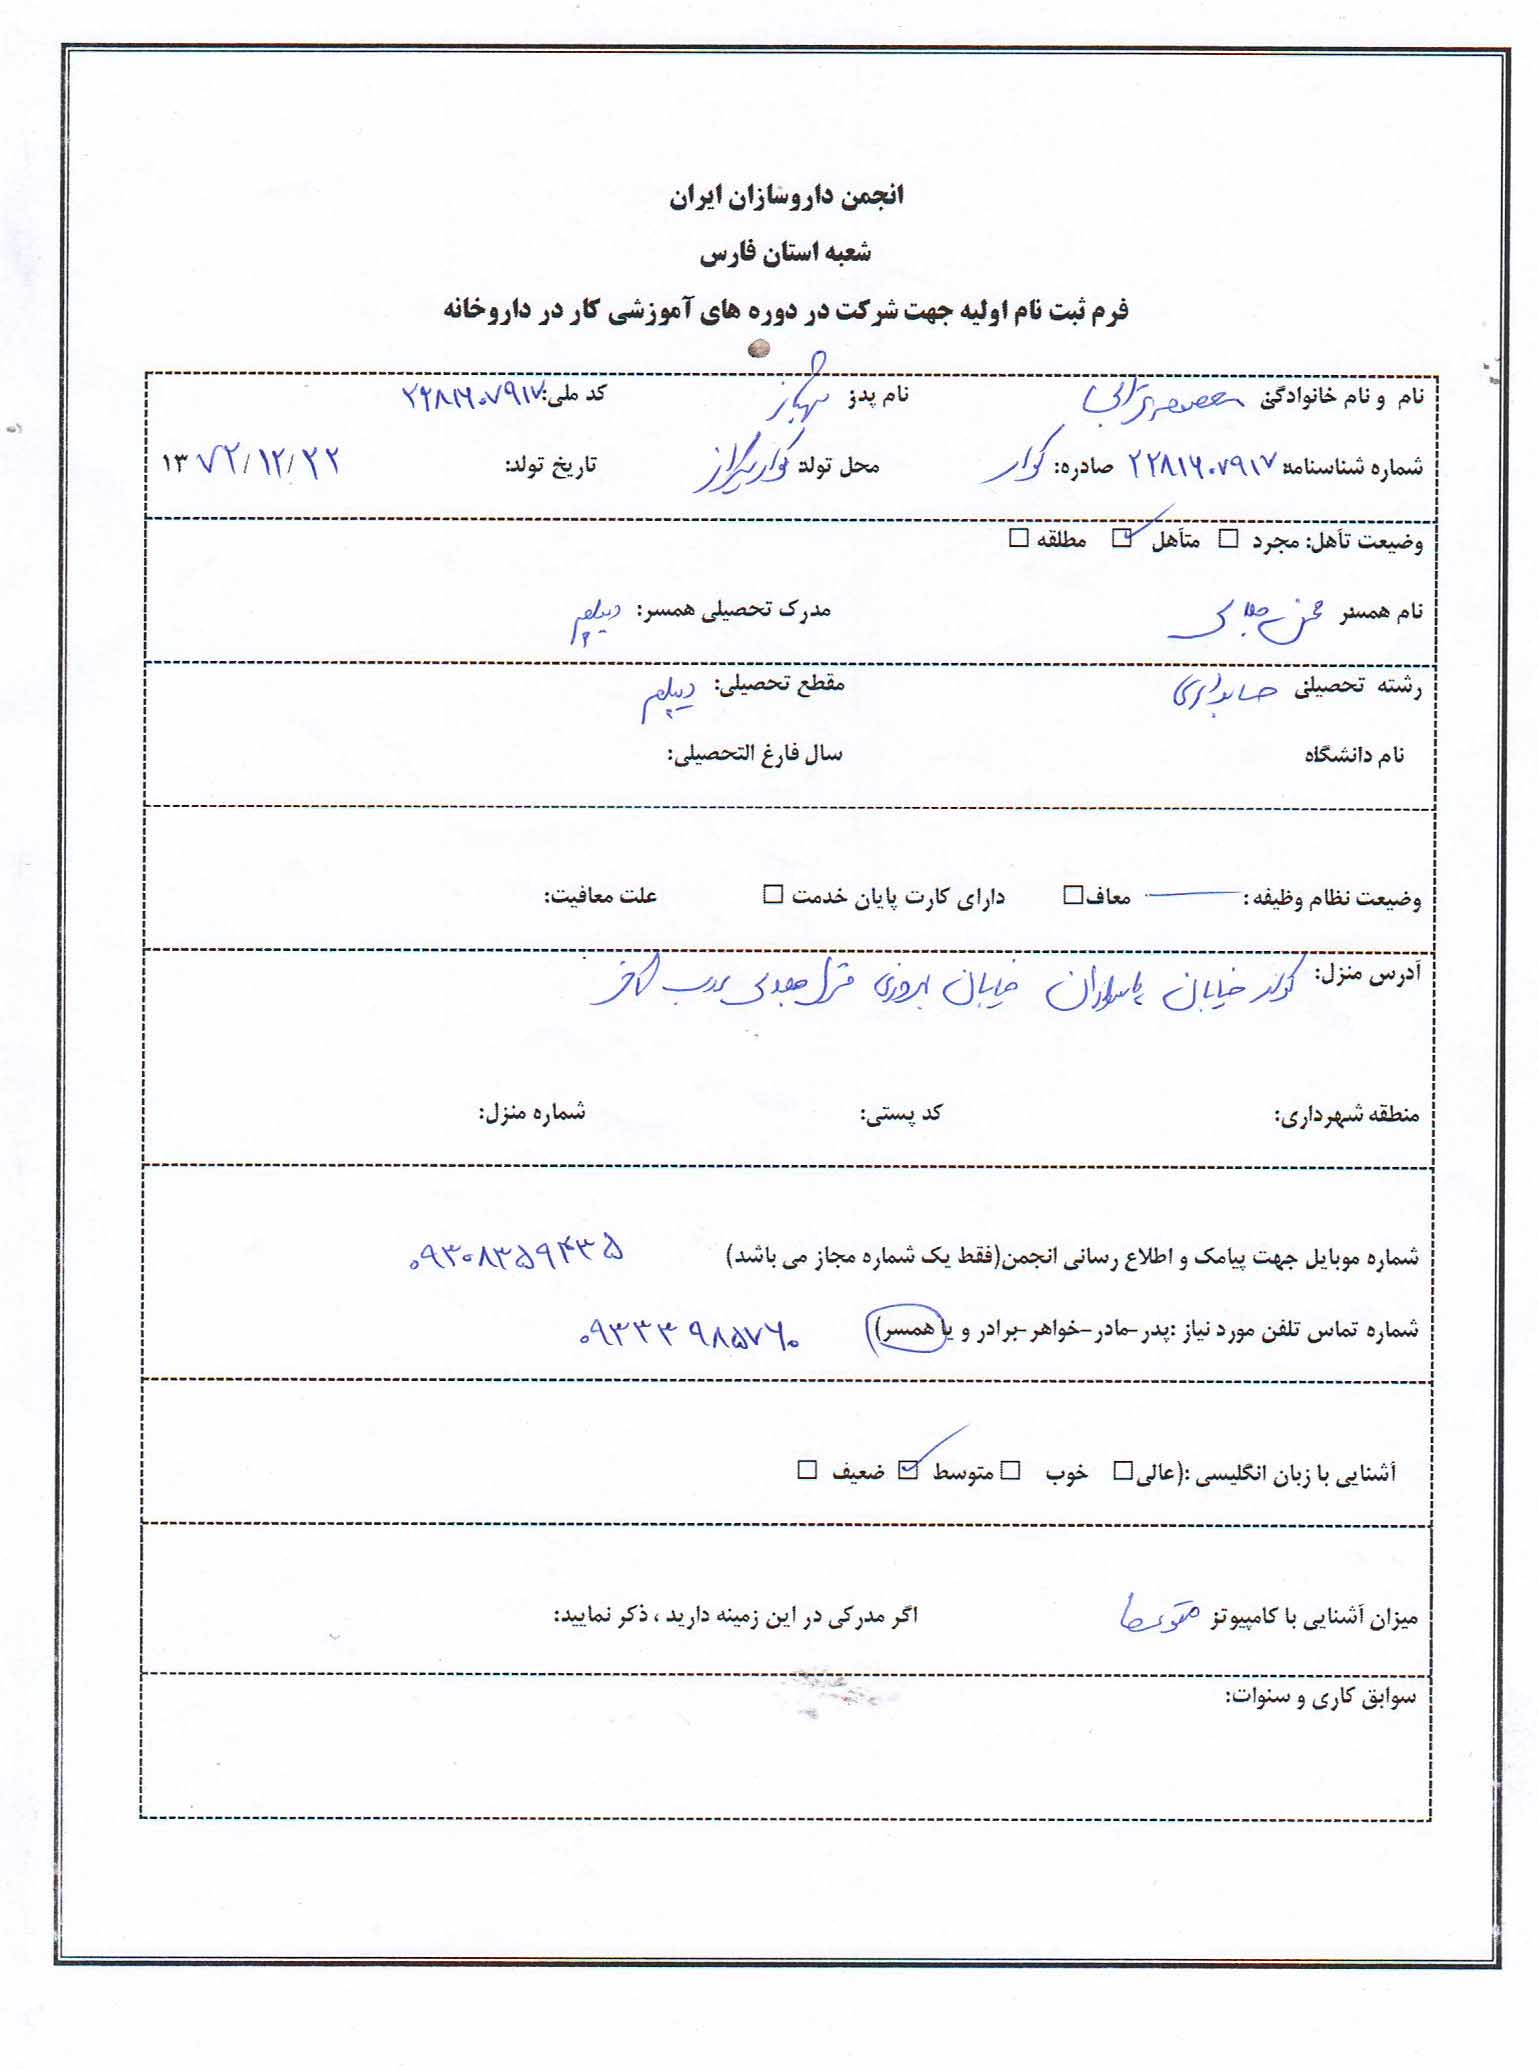 انجمن داروسازان ایران
شعبه استان فارس
فرم ثبت نام اولیه جهت شرکت در دوره های آموزشی کار در داروخانه
نام و نام خانوادگی: معصومه ترابی نام پدر: شهباز کد ملی: ۲۲۸۱۶۰۷۹۱۷
شماره شناسنامه: ۲۲۸۱۶۰۷۹۱۷ صادره: کوار محل تولد: کوار شیراز تاریخ تولد: ۱۳۷۲/۱۲/۲۲
وضیعت تأهل: مجرد ☐ متأهل ☑ مطلقه ☐
نام همسر: محسن مدرک تحصیلی همسر: دیپلم
رشته تحصیلی: حسابداری مقطع تحصیلی: دیپلم
نام دانشگاه سال فارغ التحصیلی:
وضیعت نظام وظیفه : معاف ☐ دارای کارت پایان خدمت ☐ علت معافیت:
آدرس منزل: کوار خیابان پاسداران خیابان بهروزی درب آخر
منطقه شهرداری: کد پستی: شماره منزل:
شماره موبایل جهت پیامک و اطلاع رسانی انجمن(فقط یک شماره مجاز می باشد) ۰۹۳۰۸۳۵۹۴۳۵
شماره تماس تلفن مورد نیاز :پدر-مادر-خواهر-برادر و یا همسر) ۰۹۳۳۳۹۸۵۷۶۰
آشنایی با زبان انگلیسی :(عالی ☐ خوب ☐ متوسط ☑ ضعیف ☐
میزان آشنایی با کامپیوتر: متوسط اگر مدرکی در این زمینه دارید ، ذکر نمایید:
سوابق کاری و سنوات: